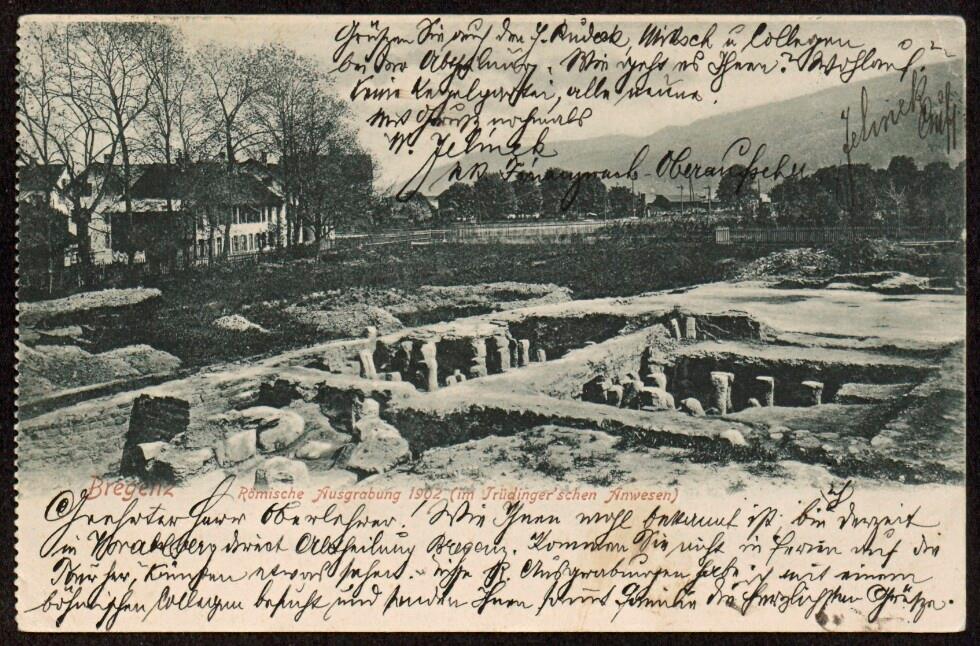 Grüßen Sie auch den H. Rudesk, Mitsch u Collegen
bei der Abtheilung. Wie geht es Ihnen? Wohlauf!
Keine Kegelpartei, alle neune.
Mit Gruß nochmals
W. Jelinek
kk Finanzwach-Oberaufseher
Jelinek
Bregenz
Römische Ausgrabung 1902 (im Trüdinger'schen Anwesen)
Geehrter Herr Oberlehrer! Wie Ihnen wohl bekannt ist, bin derzeit
in Vorarlberg direct Abtheilung Bregenz. Kommen Sie nicht in Ferien auf die
Tour her, könnten etwas sehen. Ausgrabungen habe ich mit einem
böhmischen Collegen besucht und senden Ihnen samt Familie die herzlichsten Grüße.